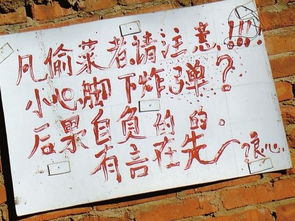 凡偷菜者请注意!!!
小心脚下炸弹?
后果自负的的.
有言在先~狠心.